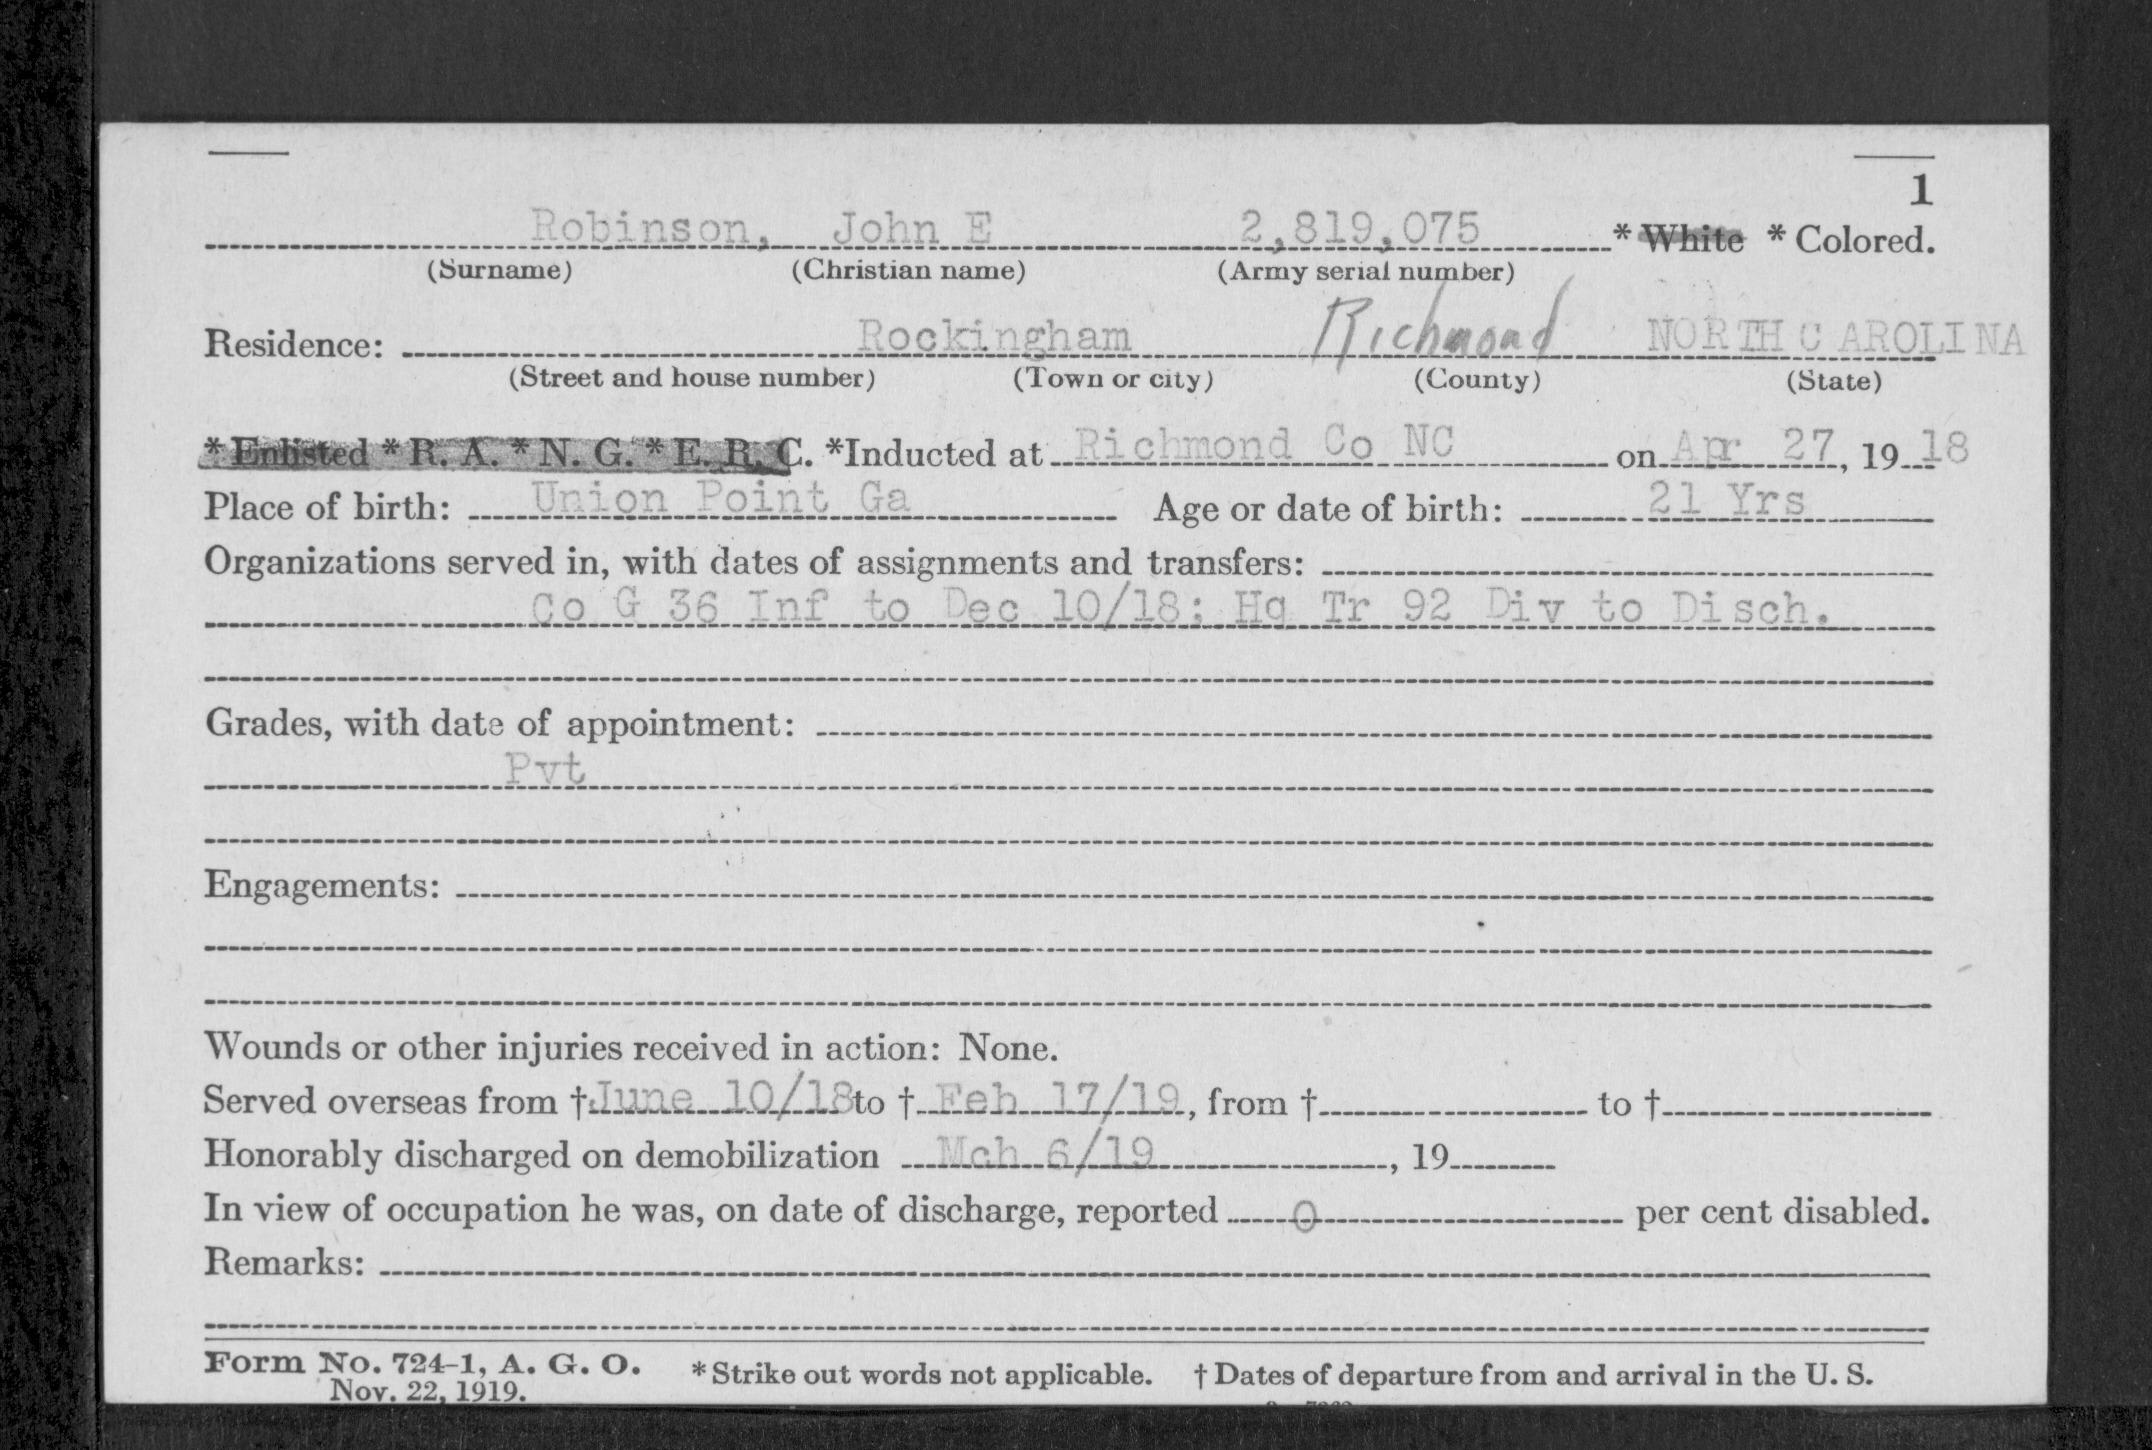 1
Robinson, John E 2,819,075 * White * Colored.
(Surname) (Christian name) (Army serial number)
Residence: Rockingham Richmond NORTH CAROLINA
(Street and house number) (Town or city) (County) (State)
* Enlisted * R. A. * N. G. * E. R. C. *Inducted at Richmond Co NC on Apr 27, 19 18
Place of birth: Union Point Ga Age or date of birth: 21 Yrs
Organizations served in, with dates of assignments and transfers:
Co G 36 Inf to Dec 10/18; Hq Tr 92 Div to Disch.
Grades, with date of appointment:
Pvt
Engagements:
Wounds or other injuries received in action: None.
Served overseas from † June 10/18 to † Feb 17/19, from † to †
Honorably discharged on demobilization Mch 6/19, 19
In view of occupation he was, on date of discharge, reported 0 per cent disabled.
Remarks:
Form No. 724-1, A. G. O. * Strike out words not applicable. † Dates of departure from and arrival in the U. S.
Nov. 22, 1919.